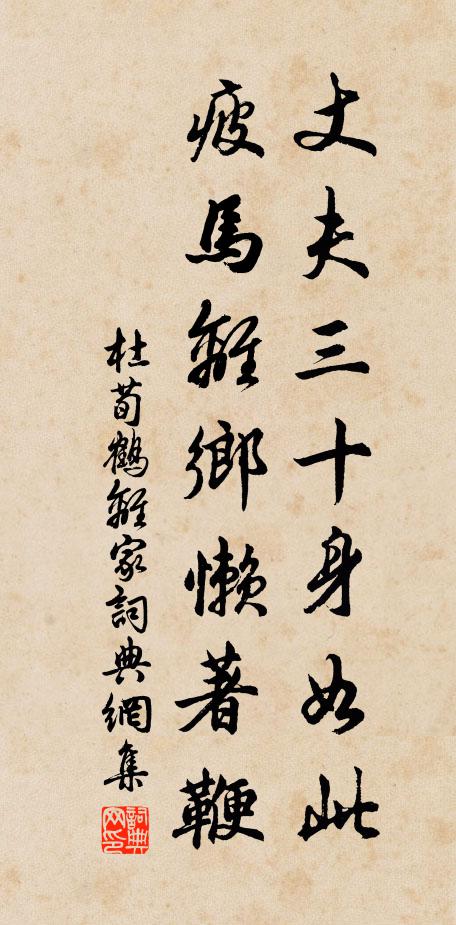 丈夫三十身如此
疲馬離鄉懶著鞭
杜荀鶴離家詞典網集
詞典网印